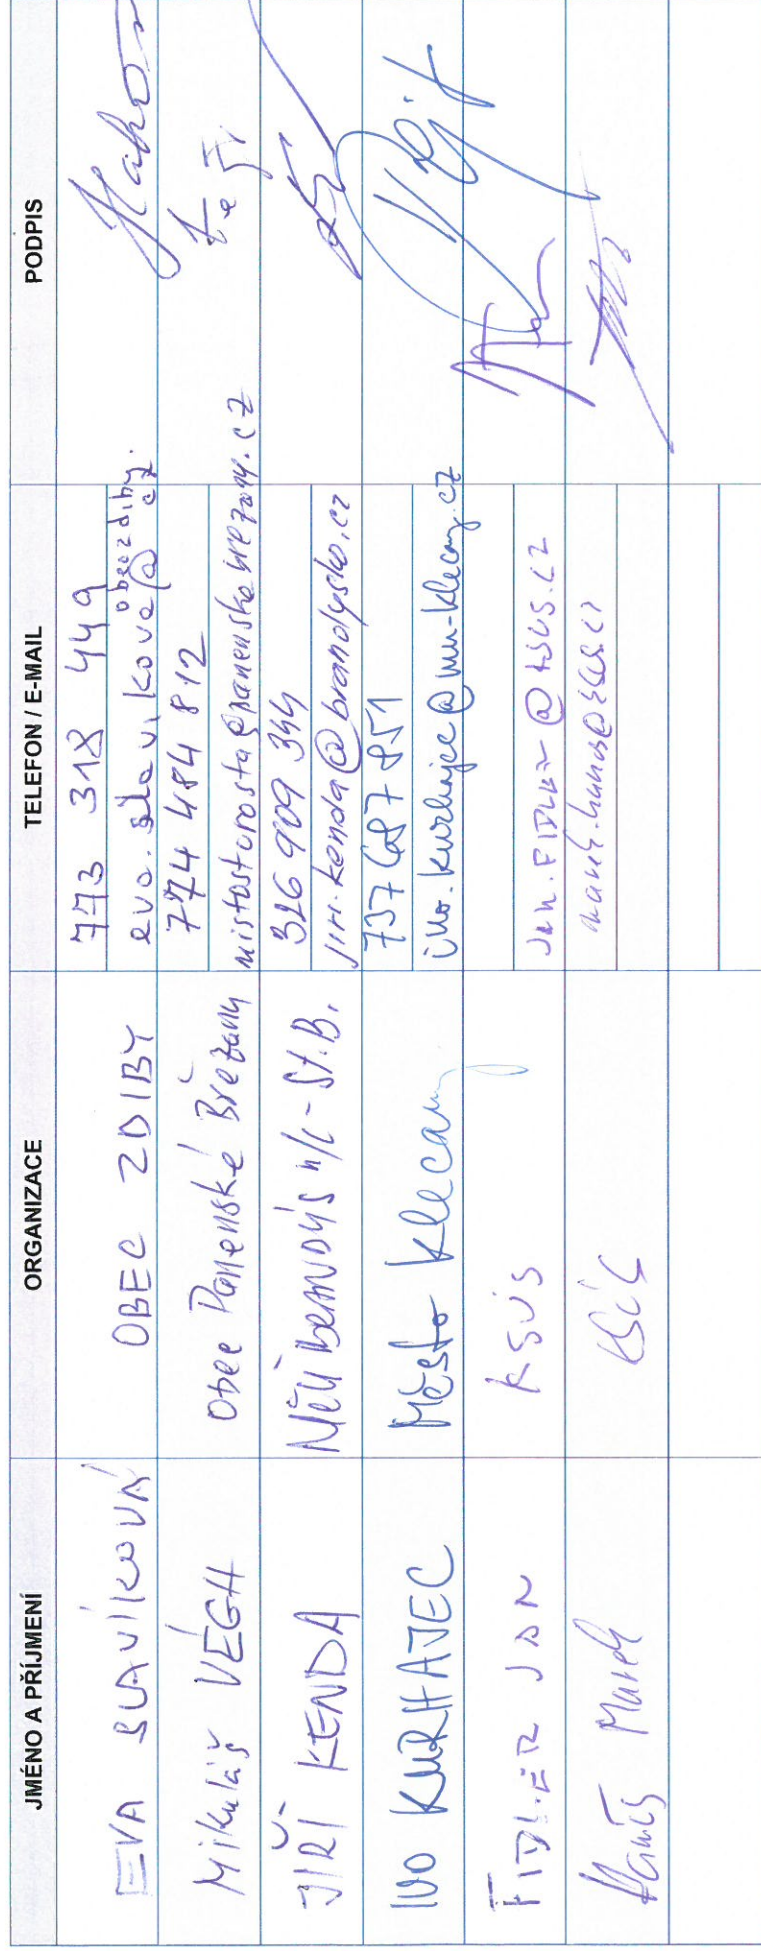 JMÉNO A PŘÍJMENÍ ORGANIZACE TELEFON / E-MAIL PODPIS
EVA SLAVÍKOVÁ OBEC ZDIBY 773 318 449
eva.slavikova@obeczdiby.cz
Mikuláš VÉGH Obec Panenské Břežany 774 484 812
mistostarosta@panenskebrezany.cz
JIŘÍ KENDA MěÚ BRANDÝS n/L - St.B. 326 909 344
jiri.kenda@brandysko.cz
IVO KURHAJEC Město Klecany 737 687 851
ivo.kurhajec@mu-klecany.cz
FIDLER JAN KSÚS
JAN.FIDLER@KSUS.CZ
Marek KSÚS